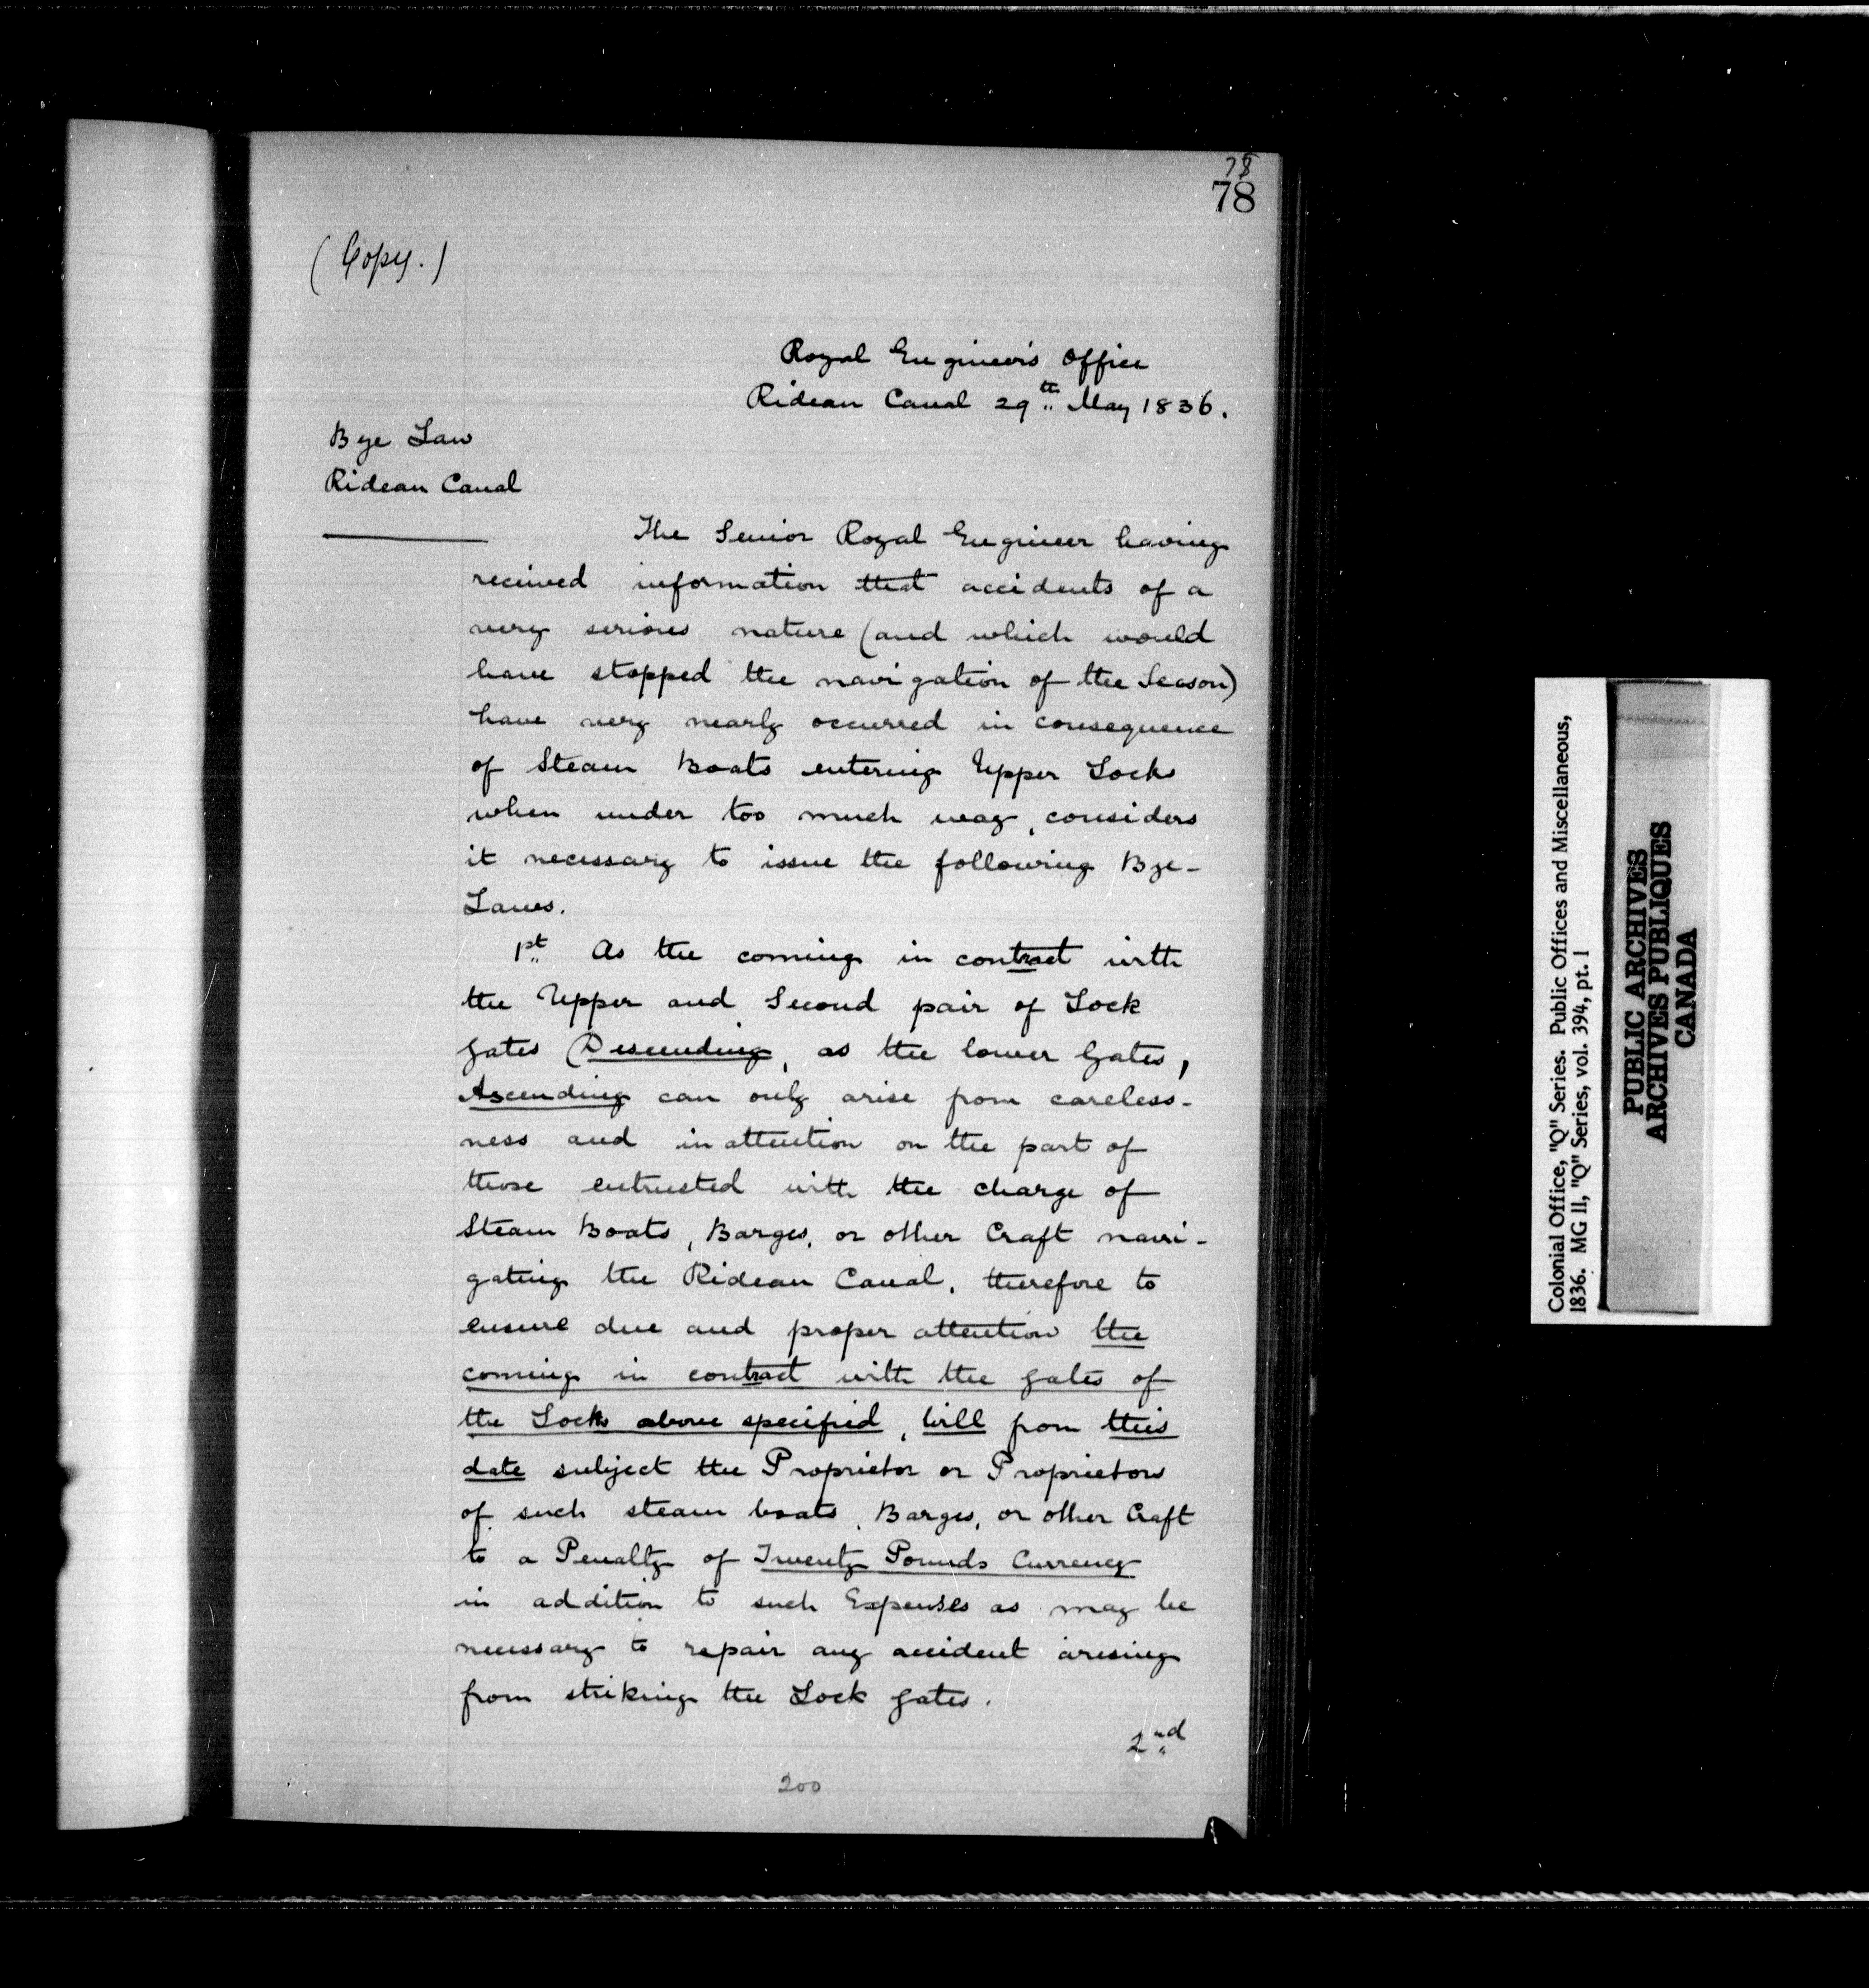 78
78
(Copy.)
Royal Engineer's Office
Rideau Canal 29th May 1836.
Bye Law
Rideau Canal
The Senior Royal Engineer having
received information that accidents of a
very serious nature (and which would
have stopped the navigation of the Season)
have very nearly occurred in consequence
of Steam Boats entering Upper Locks
when under too much way, considers
it necessary to issue the following Bye-
Laws.
1st As the coming in contract with
the Upper and Second pair of Lock
gates Descending, as the lower Gates,
Ascending can only arise from careless-
ness and inattention on the part of
those entrusted with the charge of
Steam Boats, Barges, or other Craft navi-
gating the Rideau Canal, therefore to
ensure due and proper attention the
coming in contract with the gates of
the Locks above specified, will from this
date subject the Proprietor or Proprietors
of such steam boats, Barges, or other Craft
to a Penalty of Twenty Pounds Currency
in addition to such Expenses as may be
necessary to repair any accident arising
from striking the Lock gates.
2nd
200
Colonial Office, "Q" Series. Public Offices and Miscellaneous,
1836. MG II, "Q" Series, vol. 394, pt. 1
PUBLIC ARCHIVES
ARCHIVES PUBLIQUES
CANADA